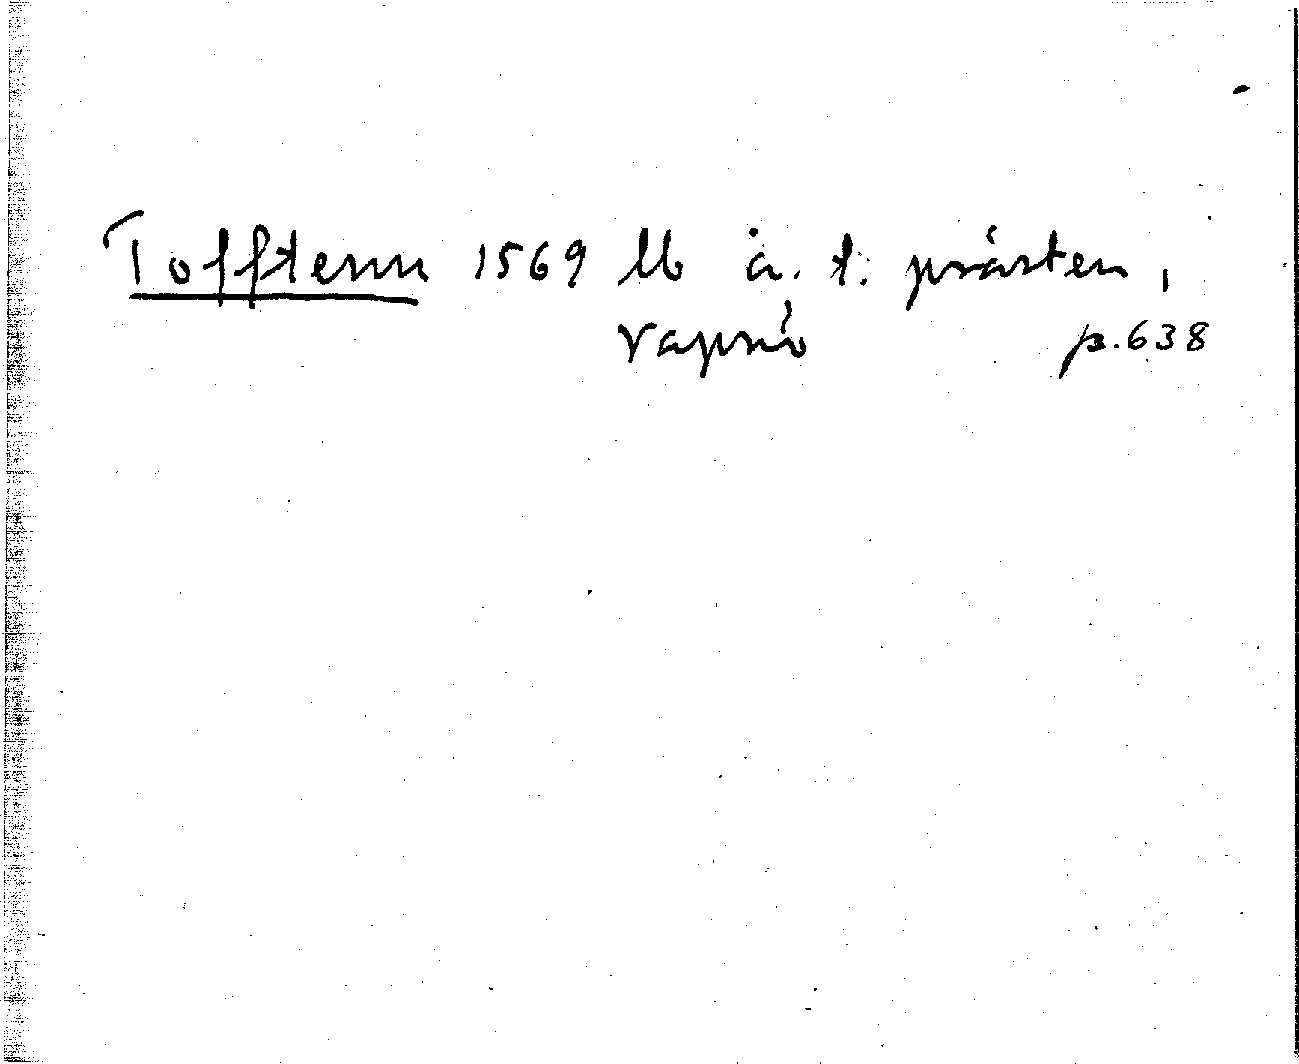 Tofftenn 1569 Mb å. t. prästen,
Vapnö p. 638